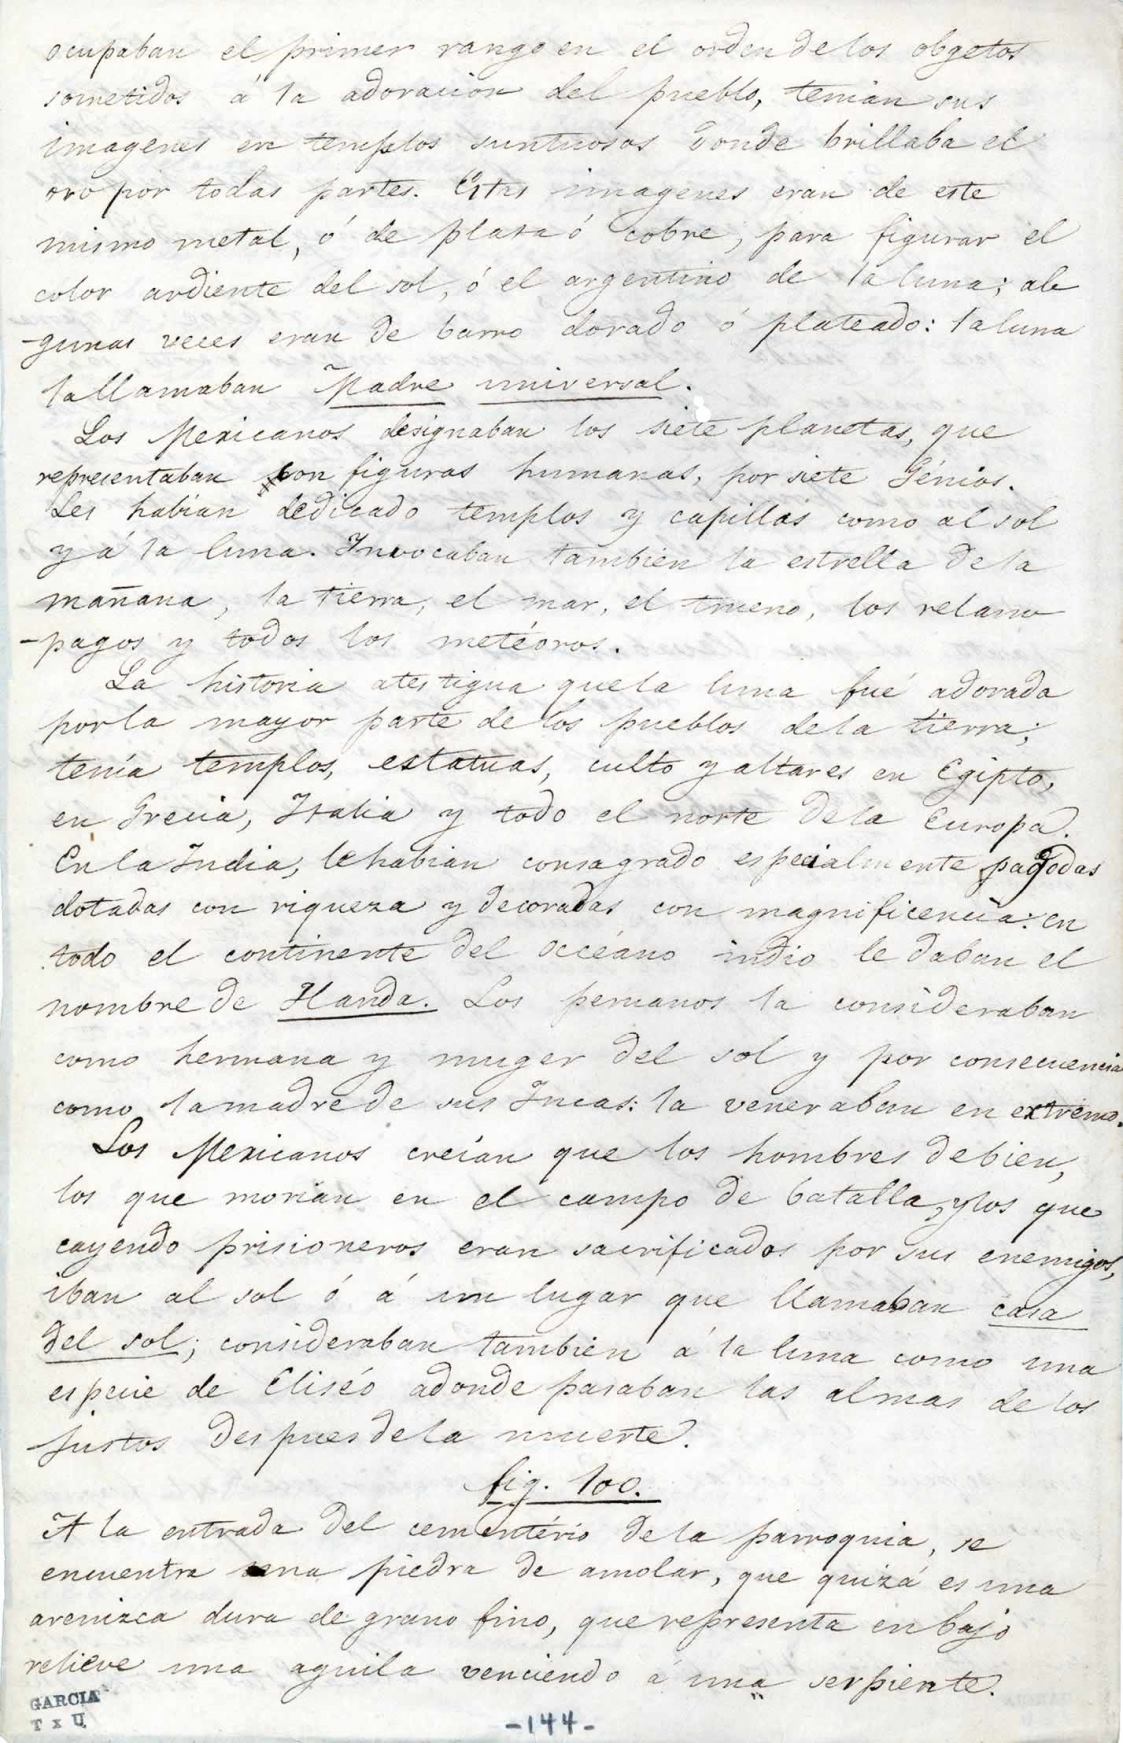 ocupaban el primer rango en el orden de los obgetos
sometidos á la adoracion del pueblo, tenian sus
imagenes en templos suntuosos donde brillaba el
oro por todas partes. Estas imagenes eran de este
mismo metal, ó de plata ó cobre, para figurar el
color ardiente del sol, ó el argentino de la luna; al
-gunas veces eran de barro dorado ó plateado: la luna
la llamaban Madre universal.
Los Mexicanos designaban los siete planetas, que
representaban con figuras humanas, por siete Génios.
Les habian dedicado templos y capillas como al sol
y á la luna. Invocaban tambien la estrella de la
mañana, la tierra, el mar, el trueno, los relam
-pagos y todos los metéoros.
La historia atestigua que la luna fué adorada
por la mayor parte de los pueblos de la tierra;
tenía templos, estatuas, culto y altares en Egipto,
en Grecia, Italia y todo el norte de la Europa.
En la India, le habian consagrado especialmente pagodas
dotadas con riqueza y decoradas con magnificencia: en
todo el continente del occéano indio le daban el
nombre de Handa. Los peruanos la consideraban
como hermana y muger del sol y por consecuencia
como la madre de sus Incas: la veneraban en extremo.
Los Mexicanos creían que los hombres de bien,
los que morian en el campo de batalla, y los que
cayendo prisioneros eran sacrificados por sus enemigos,
iban al sol ó á un lugar que llamaban casa
del sol; consideraban tambien á la luna como una
especie de Eliséo adonde pasaban las almas de los
justos despues de la muerte.
fig. 100.
A la entrada del cementério de la parroquia, se
encuentra una piedra de amolar, que quizá es una
arenizca dura de grano fino, que representa en bajo
relieve una aguila venciendo á una serpiente.
GARCIA
T x U
-144-